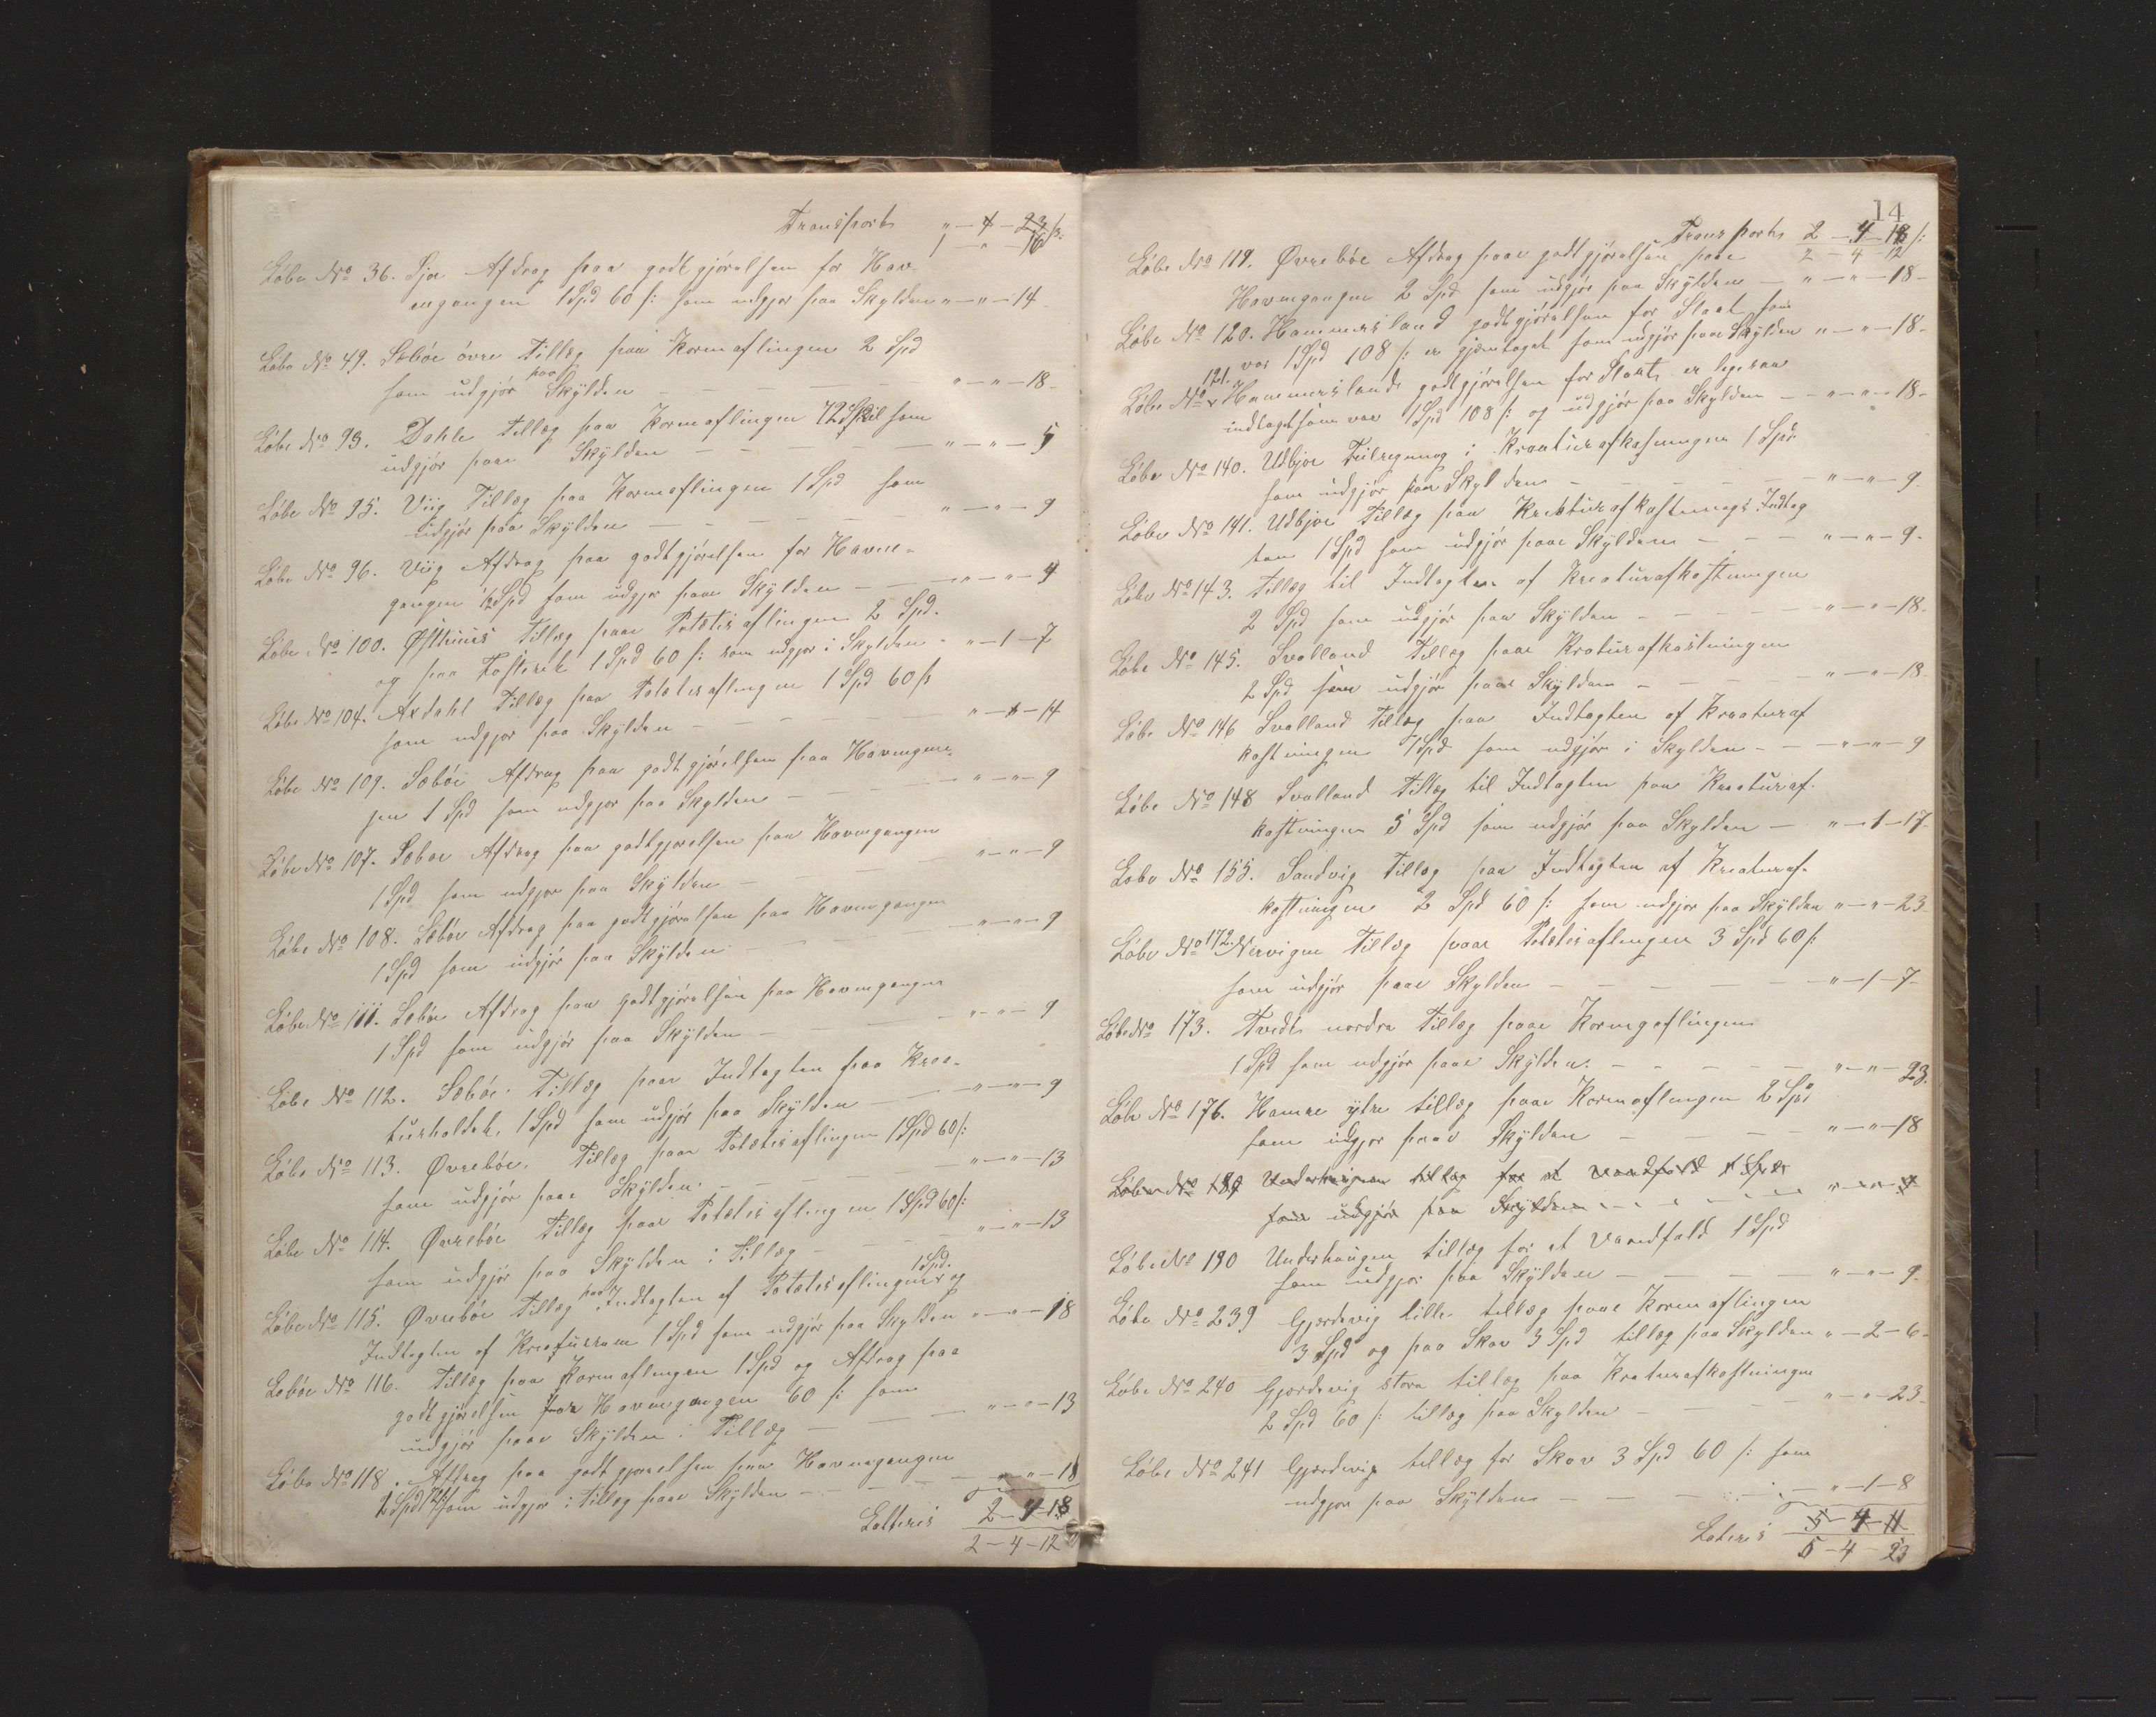 Transport „ - 4 - 23 ſ:
1 - „ - 16
Löbe No 36. Sjoe Afdrag paa godtgjörelsen for Hav-
engangen 1 Spd 60 ſ: som udgjør paa Skylden „ - „ - 14
Löbe No 49. Sæböe övre Tillæg paa Kornaflingen 2 Spd
som udgjör paa Skÿlden - - - „ - „ - 18 -
Löbe No 93. Dahle Tillæg paa Kornaflingen 72 Skil som
udgjör paa Skÿlden - - - „ - „ - 5
Löbe No 95. Viig Tillæg paa Kornaflingen 1 Spd som
udgjör paa Skÿlden - - - „ - „ - 9
Löbe No 96. Viig Afdrag paa godtgjörelsen for Havne-
gangen ½ Spd som udgjør paa Skÿlden - „ - „ - 4
Löbe No 100. Østhuus Tillæg paa Potetisaflingen 2 Spd.
og paa 1 Spd 60 ſ: som udgjør i Skylden - „ - 1 - 7
Löbe No 104. Axdahl Tillæg paa Potetisaflingen 1 Spd 60 ſ:
som udgjør paa Skÿlden - - - „ - „ - 14
Löbe No 109. Sæböe Afdrag paa godtgjörelsen paa Havnegan-
gen 1 Spd som udgjør paa Skylden - - „ - „ - 9
Löbe No 107. Sæboe Afdrag paa godtgjörelsen paa Havnegangen
1 Spd som udgjør paa Skÿlden - - - „ - „ - 9
Löbe No 108. Sæböe Afdrag paa godtgjörelsen paa Havnegangen
1 Spd som udgjör paa Skÿlden - - - „ - „ - 9
Löbe No 111. Sæböe Afdrag paa godtgjörelsen paa Havnegangen
1 Spd som udgjör paa Skÿlden - - - „ - „ - 9
Löbe No 112. Sæböe. Tillæg paa Indtagten paa Krea-
turholdet, 1 Spd som udgjör paa Skÿlden - „ - „ - 9
Löbe No 113. Øvreböe. Tillæg paa Potetisaflingen 1 Spd 60 ſ:
som udgjör paa Skÿlden. - - - „ - „ - 13
Löbe No 114. Øvreböe Tillæg paa Potetisaflingen 1 Spd 60 ſ:
som udgjör paa Skÿlden i Tillæg - - „ - „ - 13
Löbe No 115. Øvreböe Tillæg paa Indtagten af Potetisaflingen 1 Spd. og
Indtagten af Kreaturene 1 Spd som udgjör paa Skylden „ - „ - 18
Löbe No 116. Tillæg paa Kornaflingen 1 Spd og Afdrag paa
godtgjörelsen for Havnegangen 60 ſ: som
udgjör paa Skÿlden i Tillæg - - „ - „ - 13
Löbe No 118. Afdrag paa godtgjørelsen paa Havnegangen
2 Spd som udgjør i tillæg paa Skÿlden - - „ - „ - 18
Latteris 2 - 4 - 18
2 - 4 - 12
14
Transport 2 - 4 - 18 ſ:
2 - 4 - 12
Löbe No 119. Øvreböe Afdrag paa godtgjörelsen paa
Havnegangen 2 Spd som udgjör paa Skÿlden - „ - „ - 18 -
Löbe No 120. Hammersland godtgjörelsen for Slaat som
var 1 Spd 108 ſ: er gjentaget som udgjör paa Skÿlden „ - „ - 18 -
Löbe No 121. Hammerslands godtgjörelsen for Slaat er ligesaa
indtaget som var 1 Spd 108 ſ: og udgjör paa Skylden - „ - „ - 18 -
Löbe No 140. Udbjoe Feilregning i Kreaturafkastningen 1 Spd
som udgjör paa Skylden - - - „ - „ - 9
Löbe No 141. Udbjoe Tillæg paa Kreaturafkastnings Indtag
ten 1 Spd som udgjör paa Skÿlden - - - „ - „ - 9 -
Löbe No 143. Tillæg til Indtagten af Kreaturafkastningen
2 Spd som udgjör paa Skÿlden - - - „ - „ - 18 -
Löbe No 145. Svalland Tillæg paa Kreaturafkastningen
2 Spd som udgjör paa Skÿlden - - - „ - „ - 18
Löbe No 146 Svalland Tillæg paa Indtagten af Kreaturaf
kastningen 1 Spd som udgjör i Skÿlden - - - „ - „ - 9
Löbe No 148 Svalland Tillæg til Indtagten paa Kreaturaf-
kastningen 5 Spd som udgjör paa Skylden - „ - 1 - 17
Löbe No 155. Sandvig Tillæg paa Indtagten af Kreaturaf-
kastningen 2 Spd 60 ſ: som udgjør paa Skÿlden „ - „ - 23
Löbe No 172. Nervigen Tillæg paa Potetisaflingen 3 Spd 60 ſ:
som udgjör paa Skylden - - - „ - 1 - 7 -
Löbe No 173. Tvedt nordre Tillæg paa Kornaflingen
1 Spd som udgjör paa Skÿlden. - - - „ - „ - 23.
Löbe No 176. Hamre ÿtre tillæg paa Kornaflingen 2 Spd
som udgjør paa Skÿlden - - - „ - „ - 18
Löbe No 189 Underhaugen tillæg for et vandfald 1 Spd
som udgjör paa Skylden - - - „ - „ - 9
Löbe No 190 Underhaugen tillæg for et vandfald 1 Spd
som udgjør paa Skÿlden - - - „ - „ - 9
Löbe No 239 Gjerdevig lille tillæg paa Kornaflingen
3 Spd og paa Skov 3 Spd tillæg paa Skylden „ - 2 - 6 -
Löbe No 240 Gjerdevig store tillæg paa Kreaturafkastningen
2 Spd 60 ſ: tillæg paa Skylden - - - „ - „ - 23 -
Löbe No 241 Gjerdevig tillæg for Skov 3 Spd 60 ſ: som
udgjør paa Skÿlden - - - „ - 1 - 8
Lateris 5 - 4 - 11
5 - 4 - 23